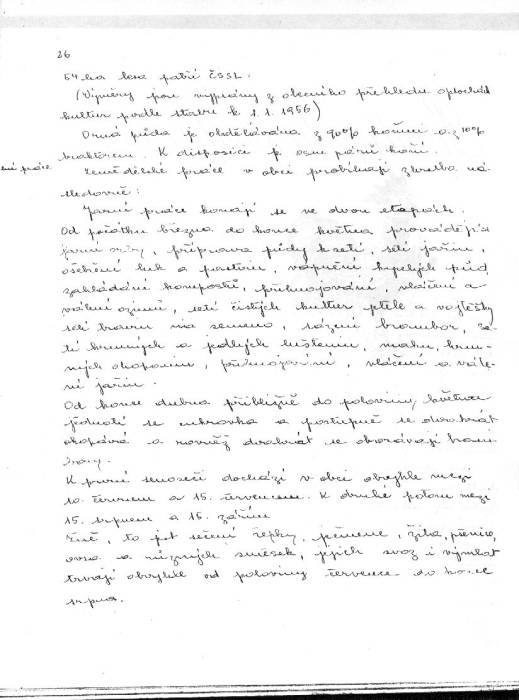 26
54 ha lesa patří ČSSL.
(Výměry jsou vypsány z obecního přehledu o plochách
kultur podle stavu k 1.1.1956)
Orná půda je obdělávána z 90% koňmi a z 10%
traktorem. K disposici je osm párů koní.
ní práce
Zemědělské práce v obci probíhají zhruba ná-
sledovně:
Jarní práce konají se ve dvou etapách.
Od počátku března do konce května provádějí se
jarní orby, příprava půdy k setí, setí jařin,
ošetření luk a pastvin, vápnění kyselých půd,
zakládání kompostů, přihnojování, vláčení a
válení ozimů, setí čistých kultur jetele a vojtěšky
setí travin na semeno, sázení brambor, se-
tí krmných a jedlých luštěnin, máku, krm-
ných okopanin, přihnojování, vláčení a vále-
ní jařin.
Od konce dubna přibližně do poloviny května
jednotí se cukrovka a postupně se dvakrát
okopává a rovněž dvakrát se oborávají bram-
bory.
K první senoseči dochází v obci obvykle mezi
10. červnem a 15. červencem. K druhé potom mezi
15. srpnem a 15. zářím.
Žně, to jest sečení řepky, ječmene, žita, pšenice,
ovsa a různých směsek, jejich svoz i výmlat
trvají obvykle od poloviny července do konce
srpna.